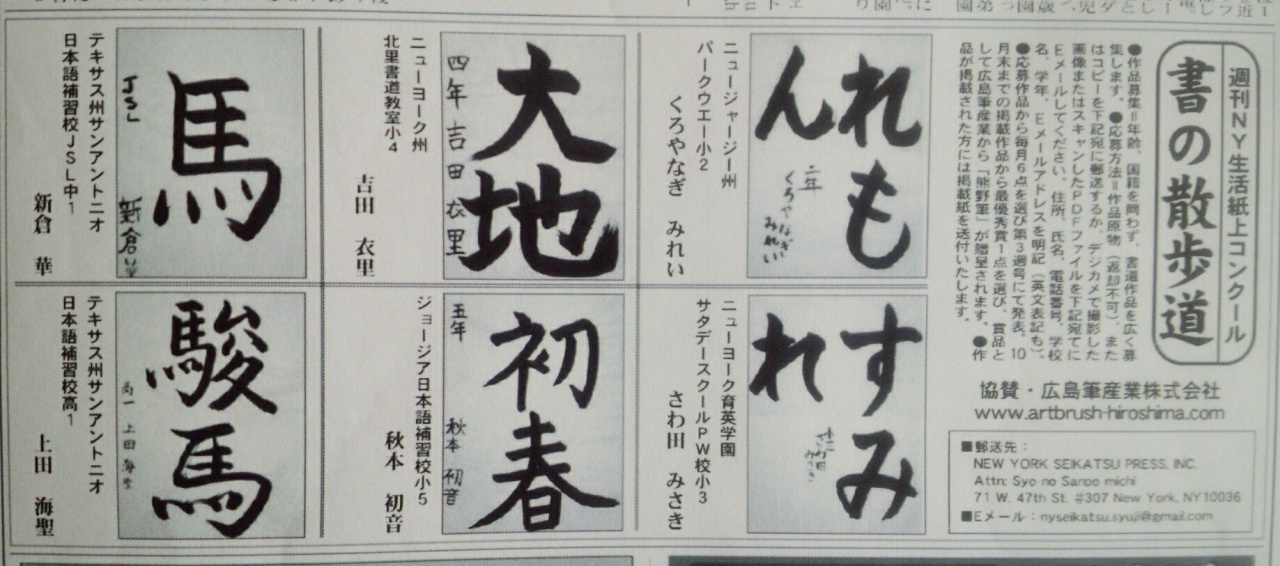 週刊NY生活紙上コンクール
書の散歩道
●作品募集=年齢、国籍を問わず、書道作品を広く募
集します。●応募方法=作品原物(返却不可)、また
はコピーを下記宛に郵送するか、デジカメで撮影した
画像またはスキャンしたPDFファイルを下記宛てに
Eメールしてください。住所、氏名、電話番号、学校
名、学年、Eメールアドレスを明記(英文表記も)、
●応募作品から毎月6点を選び第3週号にて発表。10
月末までの掲載作品から最優秀賞1点を選び、賞品と
して広島筆産業から「熊野筆」が贈呈されます。●作
品が掲載された方には掲載紙を送付いたします。
協賛・広島筆産業株式会社
www.artbrush-hiroshima.com
■郵送先:
NEW YORK SEIKATSU PRESS, INC.
Attn: Syo no Sanpo michi
71 W. 47th St. #307 New York, NY10036
■Eメール:nyseikatsu.syuji@gmail.com
れも
ん
二年
くろやなぎ
みれい
ニュージャージー州
パークウエー小2
くろやなぎ みれい
すみ
れ
小三
さわ田
みさき
ニューヨーク育英学園
サタデースクールPW校小3
さわ田 みさき
大地
四年 吉田衣里
ニューヨーク州
北里書道教室小4
吉田 衣里
初春
五年 秋本 初音
ジョージア日本語補習校小5
秋本 初音
馬
JSL 新倉華
テキサス州サンアントニオ
日本語補習校JSL中1
新倉 華
駿馬
高一 上田 海聖
テキサス州サンアントニオ
日本語補習校高1
上田 海聖